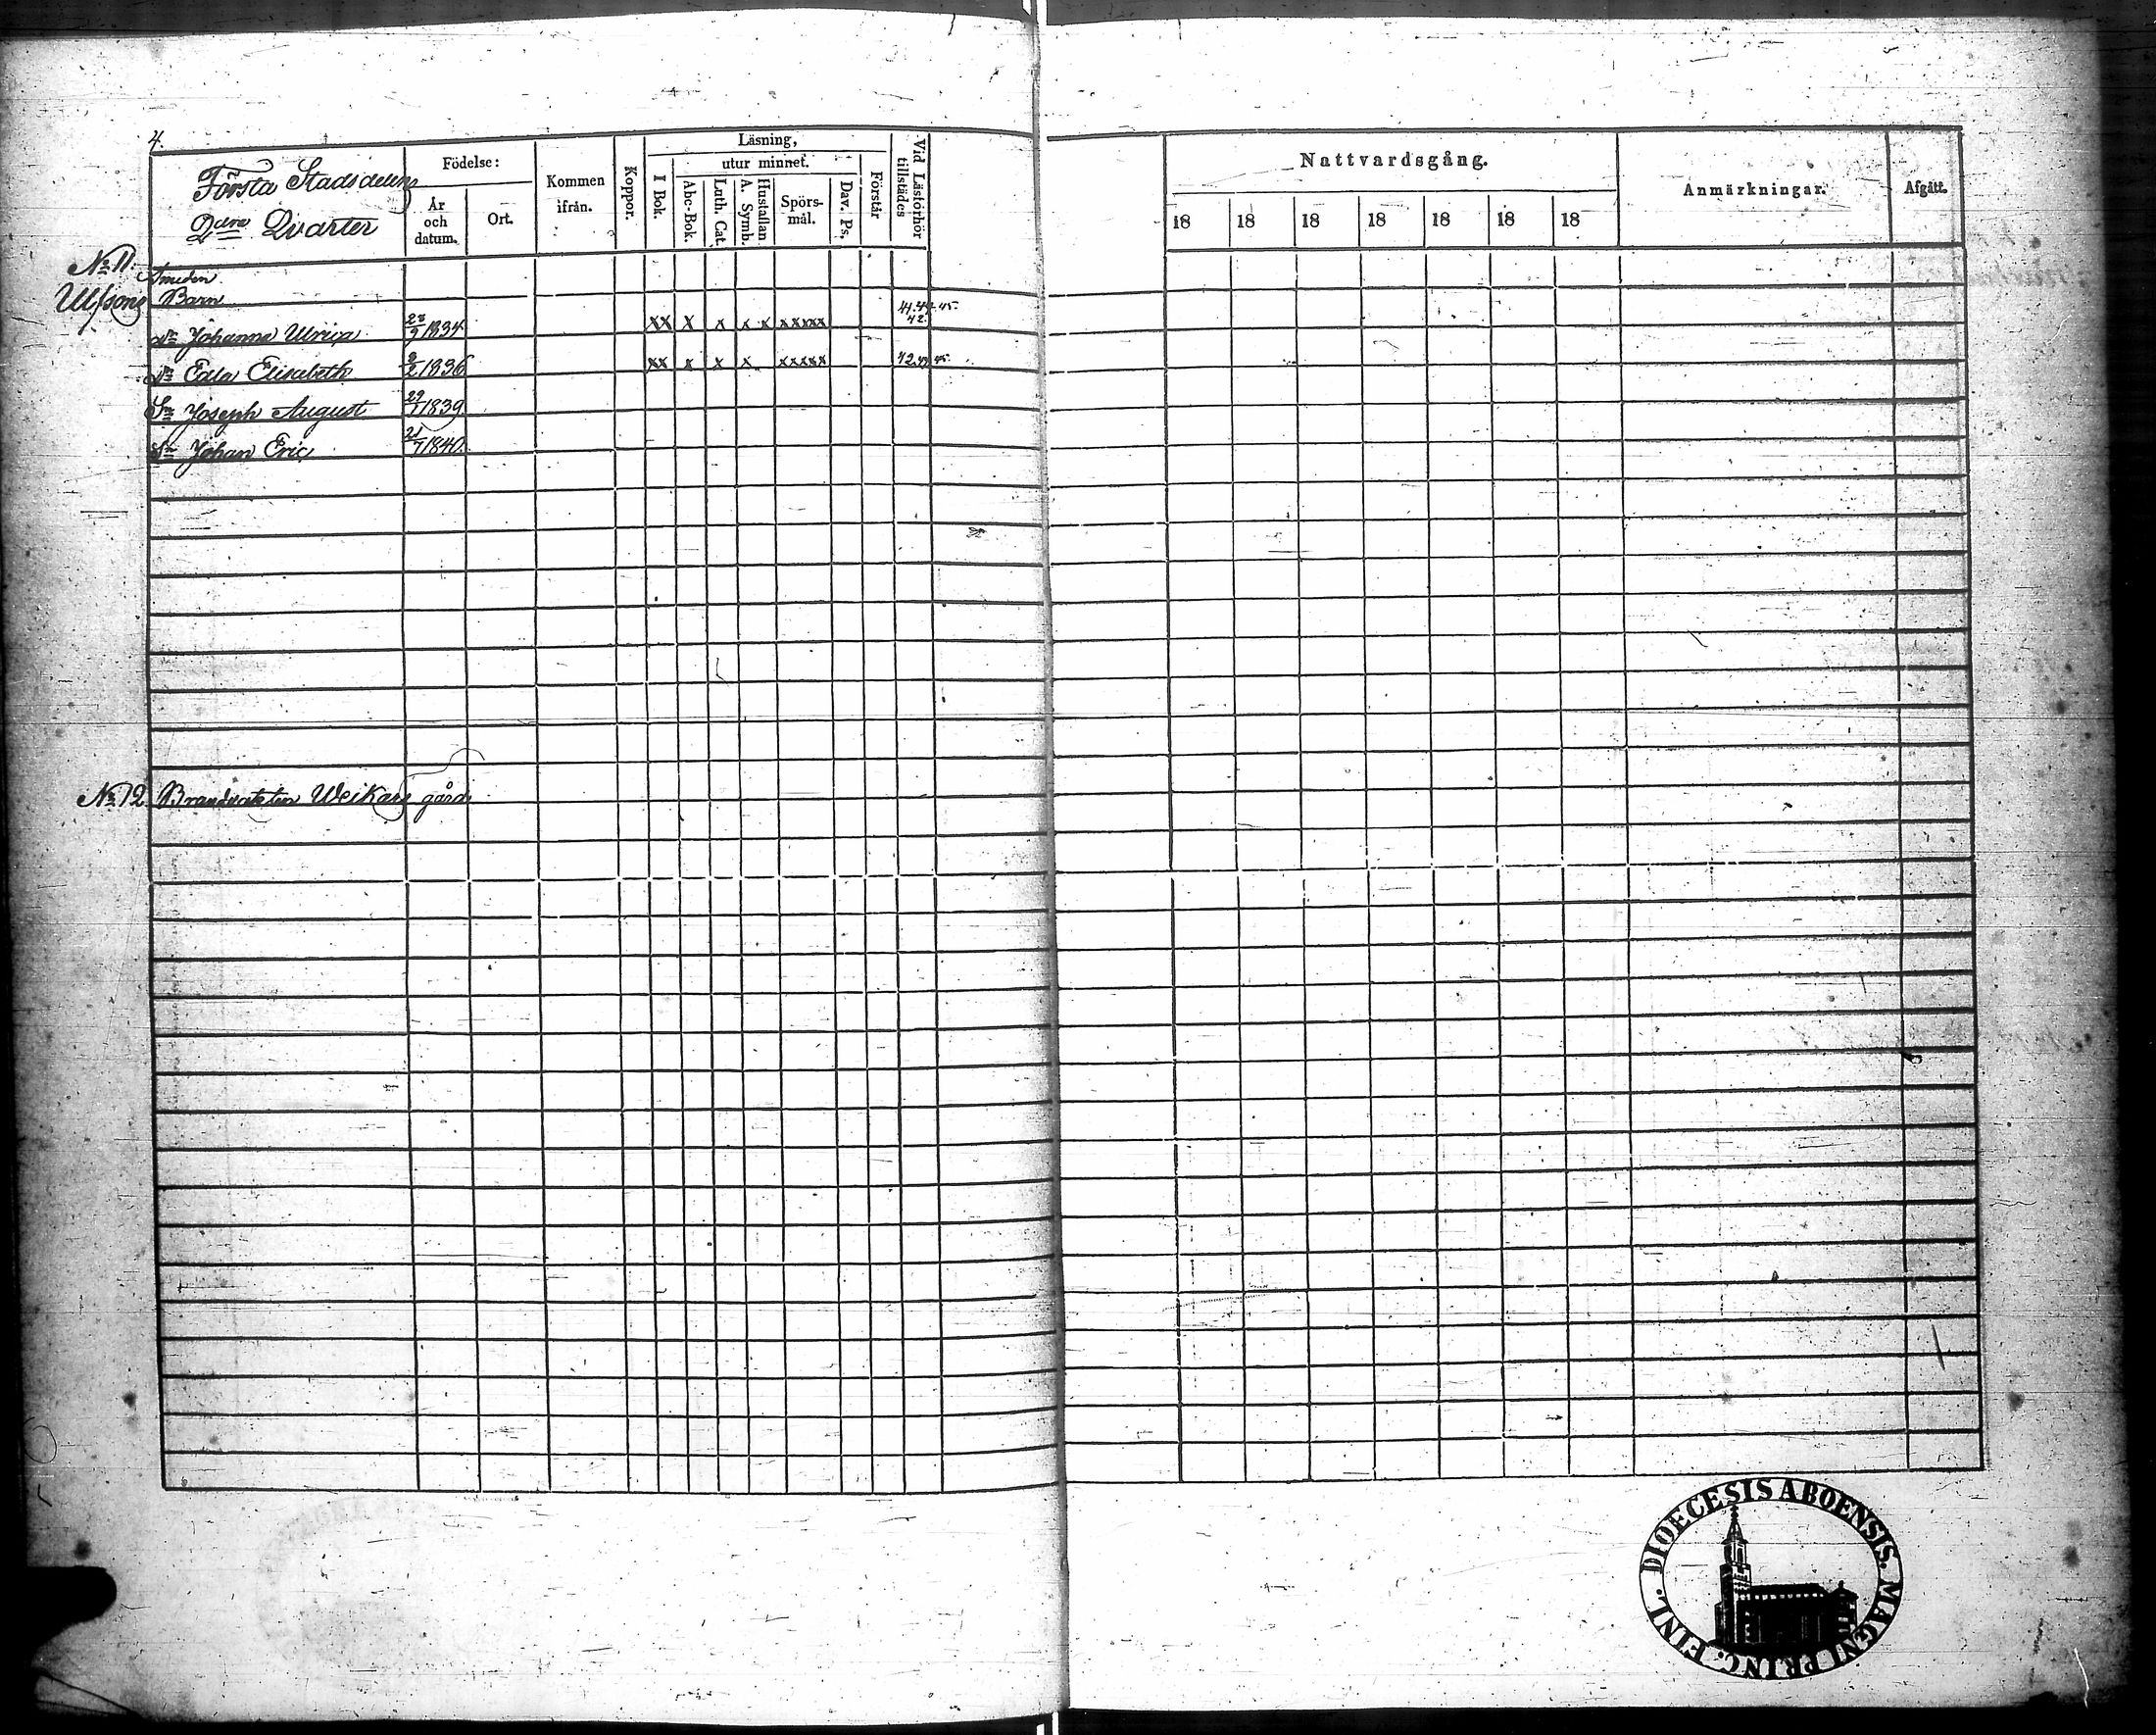 4.
Första Stadsdelens
2dra Qvarter
Födelse:
År och datum.
Ort.
Kommen ifrån.
Koppor.
Läsning,
I Bok.
utur minnet.
Abc-Bok.
Luth. Cat.
A. Symb.
Hustaflan
Spörs-mål.
Dav. Ps.
Förstår
Vid Läsförhör tillstädes
Nattvardsgång.
18 18 18 18 18 18 18
Anmärkningar.
Afgått.
No 11. Smeden
Ulfsons Barn
dr Johanna Ulrica 9 1834 xx x x x x xxxxx 41. 44. 45. 42.
dr Edla Elisabeth 2 1836 xx x x x xxxxx 42. 44. 45.
Sn Joseph August 29 1839
Sn Johan Eric 7 1840.
No 12 Brandvakten Weikars gård
DIOECESIS ABOENSIS. MAGNI PRINC. FINL.